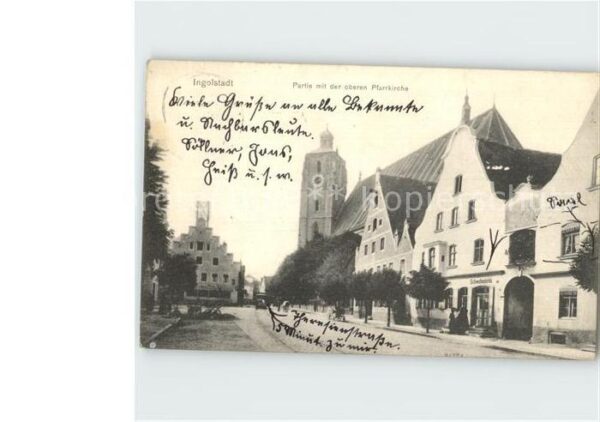 Ingolstadt
Partie mit der oberen Pfarrkirche
Viele Grüße an alle Bekannte
u. Nachbarsleute.
Söllner, Hans,
Heiß u. s. w.
Theresienstraße.
5 Minut. zu mir.